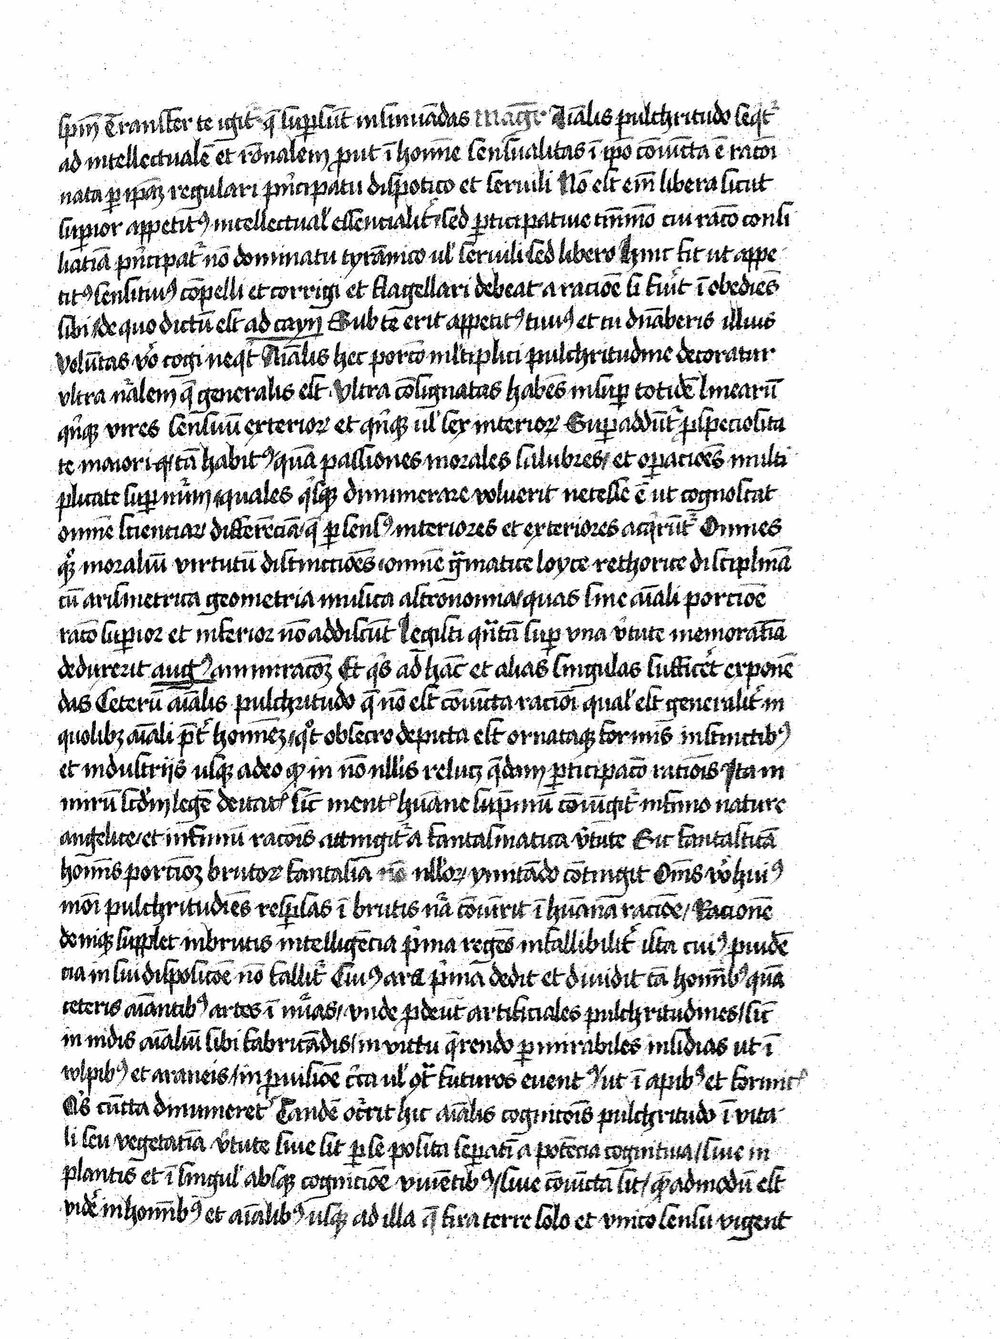 spm̄ Transfer te igit᷑ q̄ suꝑsūt insinuādas Mag̅r̅ Aīalis pulchritudo seqt᷑
ad intellectualē et rōnalem ꝓut ī homīe sensualitas ī ip̄o cōiūcta ē racōi
nata ꝑ ip̄aꝫ regulari p̄ncipatu dispotico et seruili Nō est em̄ libera sicut
suꝑior appetitꝰ intellectual᷑ essencialit᷑ sed ꝑticipatiue tn̄mō cui racō consi
liatiā p̄ncipat᷑ nō dominatu tyrānico ul᷑ seruili sed libero Hinc fit ut appe
titꝰ sensitiuꝰ cōpelli et corrigi et flagellari debeat a raciōe si fiūt īobediēs
sibi de quo dictū est ad cayn Sub te erit appetitꝰ tuuꝰ et tu dn̄aberis illius
voluntas v̊o cogi neqt Aīalis hec porcō mltiplici pulchritudine decoratur
vltra nāalem q̄ generalis est Vltra cōsignatas habēs insuꝑ totidē linearū
qn̄qꝫ vires sensuū exterioꝝ et qn̄qꝫ ul᷑ sex interioꝝ Suꝑaddūt᷑ p̄speciosita
te maiori tā habitꝰ quā passiones morales salubres et oꝑacioēs multi
plicate suꝑ nūm quales qisqꝫ dinumerare voluerit necesse ē ut cognoscat
omnē scienciaꝝ differēciā q̄ ꝑ sensꝰ interiores et exteriores acqirūt᷑ Omnes
qꝫ moraliū virtutū distinctioēs omnē gͣmatice loyce rethorice disciplinā
cū arismetrica geometria musica astronomia quas sine aīali porciōe
racō suꝑior et inferior nō addiscūt Legisti qn̄tā suꝑ vna v̊tute memoratīa
deduxerit augꝰ amiracōꝫ Et qis ad hāc et alias singulas sufficeret exponē
das Ceterū aīalis pulchritudo q̄ nō est cōiūcta raciōi qual᷑ est generalit᷑ in
quolibꝫ aīali p̄t᷑ hominēꝫ qt obsecro deputa est ornataqꝫ formis instinctibꝰ
et industrijs usqꝫ adeo qꝫ in nō nllis relucꝫ qdam ꝑticipacō rationis Ita ni
mirū scdm legē deitatꝭ sic mentꝭ hūane supmū cōiūgit᷑ infimo nature
angelice et infimū racōis attingit᷑ a fantasmatica v̊tute Sic fantasticā
homīs porcioꝫ brutoꝝ fantasia nō nlloꝝ ymitādo cōtingit Om̄s v̊o huiꝰ
mōi pulchritudiēs respsas ī brutis nā cōiūxit ī hūana raciōe Racionē
deniqꝫ supplet inbrutis intelligēcia p̄ma regēs infallibilit᷑ ista cuiꝰ ꝓuidē
cia in sui disposicōe nō fallit᷑ Cuiꝰ ars p̄mā dedit et diuidit tā homībꝰ quā
ceteris aīantibꝰ artes ī nīas vnde ꝓdeūt artificiales pulchritudines sic
in nidis aīaliū sibi fabricādis in victu q̄rendo ꝑ mirabiles insidias ut ī
wlpibꝰ et araneis in ꝓuisiōe cc̄a ul᷑ ꝯt futuros euentꝰ ut ī apibꝰ et formicꝭ
Qis cūcta dinumeret Tandē occrit hic aīalis cognicōis pulchritudo ī vita
li seu vegetatīa v̊tute siue sit ꝑ se posita seꝑatī a potēcia cognitiua siue in
plantis et ī singul᷑ absqꝫ cognicōe viuētibꝰ siue cōiūcta sit quēadmodū est
videre in homībꝰ et aīalibꝰ usqꝫ ad illa q̄ fixa terre solo et vnico sensu vigent